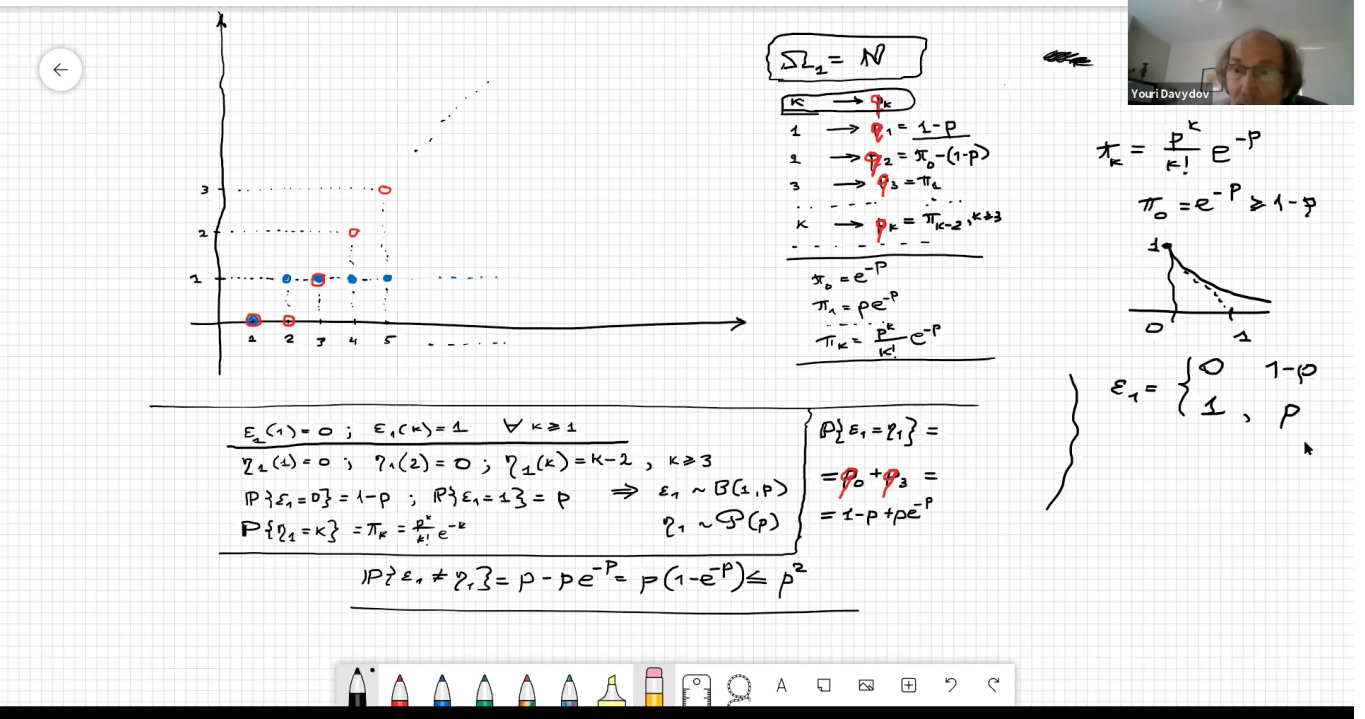 Ω₂ = ℕ
K → q_K
1 → q₁ = 1-p
2 → q₂ = π₀-(1-p)
3 → q₃ = π₁
K → q_K = π_{K-2}, K≥3
π₀ = e^{-p}
π₁ = pe^{-p}
π_K = p^K/K! e^{-p}
Youri Davydov
π_K = p^K/K! e^{-p}
π₀ = e^{-p} ≥ 1-p
1
0 1
ε₁ = { 0 1-p
1, p
3
2
1
1 2 3 4 5
ε₁(1)=0 ; ε₁(K)=1 ∀ K≥1
η₁(1)=0 ; η₁(2)=0 ; η₁(K)=K-2 , K≥3
ℙ{ε₁=0}=1-p ; ℙ{ε₁=1}=p ⇒ ε₁ ~ B(1,p)
P{η₁=K} = π_K = p^K/K! e^{-K} η₁ ~ 𝒫(p)
ℙ{ε₁=η₁} =
= q₀ + q₃ =
= 1-p+pe^{-p}
ℙ{ε₁≠η₁} = p - pe^{-p} = p(1-e^{-p}) ≤ p²
A